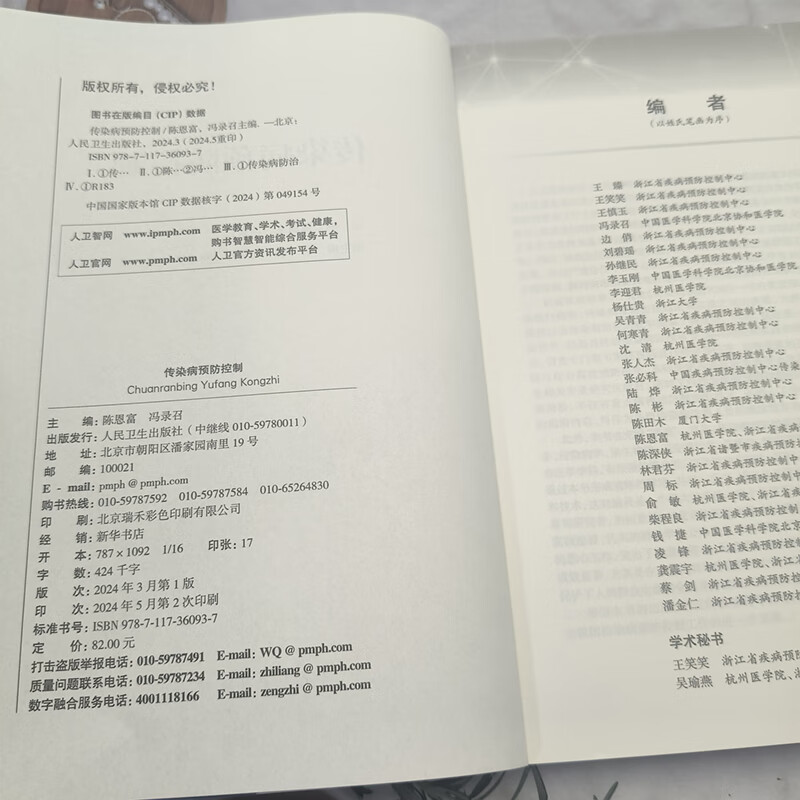 版权所有，侵权必究！
图书在版编目（CIP）数据
传染病预防控制 / 陈恩富，冯录召主编. —北京：
人民卫生出版社，2024.3（2024.5重印）
ISBN 978-7-117-36093-7
Ⅰ.①传… Ⅱ.①陈…②冯… Ⅲ.①传染病防治
Ⅳ.①R183
中国国家版本馆 CIP 数据核字（2024）第 049154 号
人卫智网 www.ipmph.com 医学教育、学术、考试、健康，
购书智慧智能综合服务平台
人卫官网 www.pmph.com 人卫官方资讯发布平台
传染病预防控制
Chuanranbing Yufang Kongzhi
主 编：陈恩富 冯录召
出版发行：人民卫生出版社（中继线 010-59780011）
地 址：北京市朝阳区潘家园南里 19 号
邮 编：100021
E - mail：pmph @ pmph.com
购书热线：010-59787592 010-59787584 010-65264830
印 刷：北京瑞禾彩色印刷有限公司
经 销：新华书店
开 本：787 × 1092 1/16 印张：17
字 数：424 千字
版 次：2024 年 3 月第 1 版
印 次：2024 年 5 月第 2 次印刷
标准书号：ISBN 978-7-117-36093-7
定 价：82.00 元
打击盗版举报电话：010-59787491 E-mail：WQ @ pmph.com
质量问题联系电话：010-59787234 E-mail：zhiliang @ pmph.com
数字融合服务电话：4001118166 E-mail：zengzhi @ pmph.com
编 者
（以姓氏笔画为序）
王 臻 浙江省疾病预防控制中心
王笑笑 浙江省疾病预防控制中心
王慎玉 浙江省疾病预防控制中心
冯录召 中国医学科学院北京协和医学院
边 俏 浙江省疾病预防控制中心
刘碧瑶 浙江省疾病预防控制中心
孙继民 浙江省疾病预防控制中心
李玉刚 中国医学科学院北京协和医学院
李迎君 杭州医学院
杨仕贵 浙江大学
吴青青 浙江省疾病预防控制中心
何寒青 浙江省疾病预防控制中心
沈 清 杭州医学院
张人杰 浙江省疾病预防控制中心
张必科 中国疾病预防控制中心传染
陆 烨 浙江省疾病预防控制中心
陈 彬 浙江省疾病预防控制中心
陈田木 厦门大学
陈恩富 杭州医学院、浙江省疾
陈深侠 浙江省诸暨市疾病预防
林君芬 浙江省疾病预防控制
周 标 浙江省疾病预防控制
俞 敏 杭州医学院、浙江省
柴程良 浙江省疾病预防控制
钱 捷 中国医学科学院北
凌 锋 浙江省疾病预防控
龚震宇 杭州医学院、浙江
蔡 剑 浙江省疾病预防控
潘金仁 浙江省疾病预防控
学术秘书
王笑笑 浙江省疾病预防
吴瑜燕 杭州医学院、浙